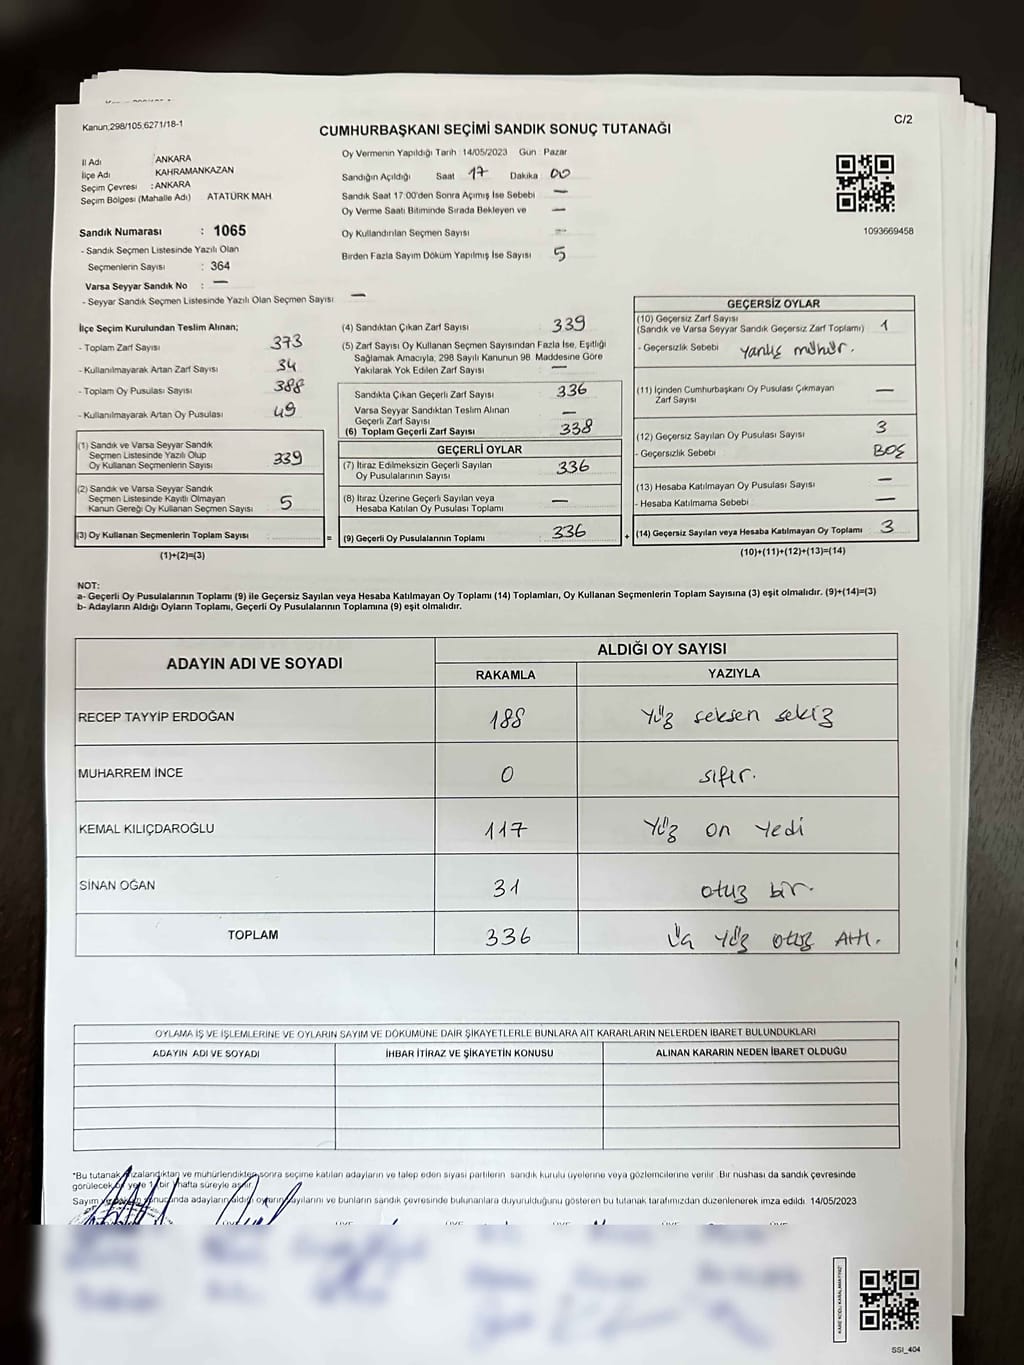 Kanun;298/105;6271/18-1
C/2
CUMHURBAŞKANI SEÇİMİ SANDIK SONUÇ TUTANAĞI
İl Adı ANKARA
İlçe Adı KAHRAMANKAZAN
Seçim Çevresi : ANKARA
Seçim Bölgesi (Mahalle Adı) ATATÜRK MAH
Oy Vermenin Yapıldığı Tarih 14/05/2023 Gün : Pazar
Sandığın Açıldığı Saat 17 Dakika 00
Sandık Saat 17:00'den Sonra Açımış İse Sebebi —
Oy Verme Saati Bitiminde Sırada Bekleyen ve —
Oy Kullandırılan Seçmen Sayısı —
Birden Fazla Sayım Döküm Yapılmış İse Sayısı 5
1093669458
Sandık Numarası : 1065
- Sandık Seçmen Listesinde Yazılı Olan
Seçmenlerin Sayısı : 364
Varsa Seyyar Sandık No : —
- Seyyar Sandık Seçmen Listesinde Yazılı Olan Seçmen Sayısı —
İlçe Seçim Kurulundan Teslim Alınan;
- Toplam Zarf Sayısı 373
- Kullanılmayarak Artan Zarf Sayısı 34
- Toplam Oy Pusulası Sayısı 388
- Kullanılmayarak Artan Oy Pusulası 49
(1) Sandık ve Varsa Seyyar Sandık
Seçmen Listesinde Yazılı Olup
Oy Kullanan Seçmenlerin Sayısı 339
(2) Sandık ve Varsa Seyyar Sandık
Seçmen Listesinde Kayıtlı Olmayan
Kanun Gereği Oy Kullanan Seçmen Sayısı 5
(3) Oy Kullanan Seçmenlerin Toplam Sayısı =
(1)+(2)=(3)
(4) Sandıktan Çıkan Zarf Sayısı 339
(5) Zarf Sayısı Oy Kullanan Seçmen Sayısından Fazla İse, Eşitliği
Sağlamak Amacıyla; 298 Sayılı Kanunun 98. Maddesine Göre
Yakılarak Yok Edilen Zarf Sayısı —
Sandıkta Çıkan Geçerli Zarf Sayısı 336
Varsa Seyyar Sandıktan Teslim Alınan
Geçerli Zarf Sayısı —
(6) Toplam Geçerli Zarf Sayısı 338
GEÇERLİ OYLAR
(7) İtiraz Edilmeksizin Geçerli Sayılan
Oy Pusulalarının Sayısı 336
(8) İtiraz Üzerine Geçerli Sayılan veya
Hesaba Katılan Oy Pusulası Toplamı —
(9) Geçerli Oy Pusulalarının Toplamı 336 +
GEÇERSİZ OYLAR
(10) Geçersiz Zarf Sayısı
(Sandık ve Varsa Seyyar Sandık Geçersiz Zarf Toplamı) 1
- Geçersizlik Sebebi yanlış mühür.
(11) İçinden Cumhurbaşkanı Oy Pusulası Çıkmayan
Zarf Sayısı —
(12) Geçersiz Sayılan Oy Pusulası Sayısı 3
- Geçersizlik Sebebi BOŞ
(13) Hesaba Katılmayan Oy Pusulası Sayısı —
- Hesaba Katılmama Sebebi —
(14) Geçersiz Sayılan veya Hesaba Katılmayan Oy Toplamı 3
(10)+(11)+(12)+(13)=(14)
NOT:
a- Geçerli Oy Pusulalarının Toplamı (9) ile Geçersiz Sayılan veya Hesaba Katılmayan Oy Toplamı (14) Toplamları, Oy Kullanan Seçmenlerin Toplam Sayısına (3) eşit olmalıdır. (9)+(14)=(3)
b- Adayların Aldığı Oyların Toplamı, Geçerli Oy Pusulalarının Toplamına (9) eşit olmalıdır.
ADAYIN ADI VE SOYADI
ALDIĞI OY SAYISI
RAKAMLA YAZIYLA
RECEP TAYYİP ERDOĞAN 188 Yüz seksen sekiz
MUHARREM İNCE 0 sıfır.
KEMAL KILIÇDAROĞLU 117 Yüz on yedi
SİNAN OĞAN 31 otuz bir.
TOPLAM 336 Üç yüz otuz Altı.
OYLAMA İŞ VE İŞLEMLERİNE VE OYLARIN SAYIM VE DÖKÜMÜNE DAİR ŞİKAYETLERLE BUNLARA AİT KARARLARIN NELERDEN İBARET BULUNDUKLARI
ADAYIN ADI VE SOYADI İHBAR İTİRAZ VE ŞİKAYETİN KONUSU ALINAN KARARIN NEDEN İBARET OLDUĞU
*Bu tutanak imzalandıktan ve mühürlendikten sonra seçime katılan adayların ve talep eden siyasi partilerin sandık kurulu üyelerine veya gözlemcilerine verilir. Bir nüshası da sandık çevresinde
görülecek bir yere 1 bir hafta süreyle asılır.
Sayım sonucunda adayların aldığı oyların sayılarını ve bunların sandık çevresinde bulunanlara duyurulduğunu gösteren bu tutanak tarafımızdan düzenlenerek imza edildi. 14/05/2023
SSI_404